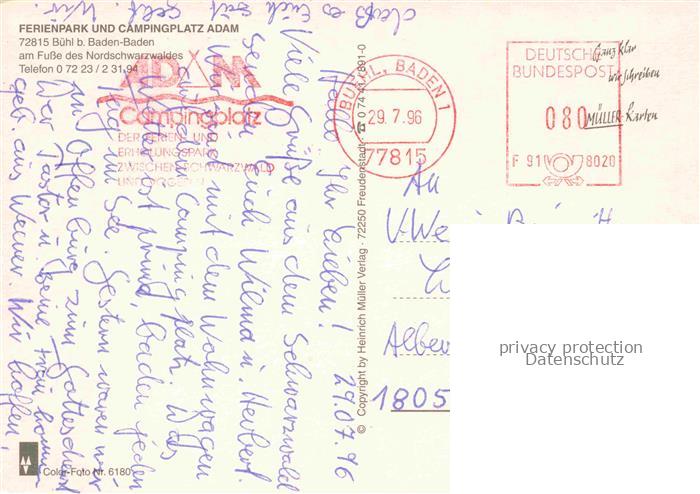 FERIENPARK UND CAMPINGPLATZ ADAM
72815 Bühl b. Baden-Baden
am Fuße des Nordschwarzwaldes
Telefon 0 72 23 / 2 31 94
ADAM
Campingplatz
DER FERIEN- UND
ERHOLUNGSPARK
ZWISCHEN SCHWARZWALD
UND
BÜHL, BADEN 1
29.7.96
77815
DEUTSCHE
BUNDESPOST
080
F 91 8020
Ganz klar
wir schreiben
MÜLLER-Karten
29.07.96
Hallo Ihr Lieben!
Viele Grüße aus dem Schwarzwald
senden Euch Wilma u. Herbert.
Wir sind mit dem Wohnwagen
Campingplatz. Das
Wetter ist prima, baden jeden
Tag im See. Gestern waren wir
in Offenburg zum Gottesdienst
Der Pastor u. seine Frau kommen
aus Weener. Wir hoffen,
daß es Euch gut geht. Wir
© Copyright by Heinrich Müller Verlag · 72250 Freudenstadt · ☎ 0 74 41/891-0
An
Color-Foto Nr. 6180
1805
privacy protection
Datenschutz